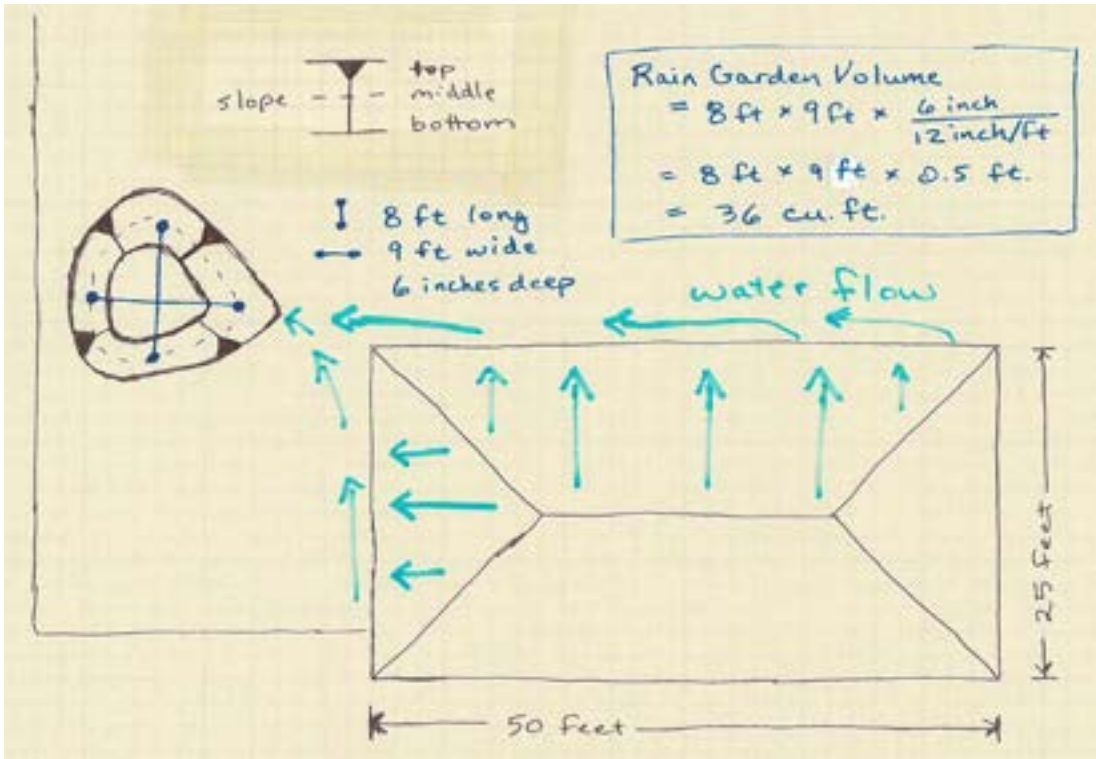 slope
top
middle
bottom
Rain Garden Volume
= 8 ft × 9 ft × 6 inch
12 inch/ft
= 8 ft × 9 ft × 0.5 ft.
= 36 cu. ft.
8 ft long
9 ft wide
6 inches deep
water flow
25 feet
50 feet